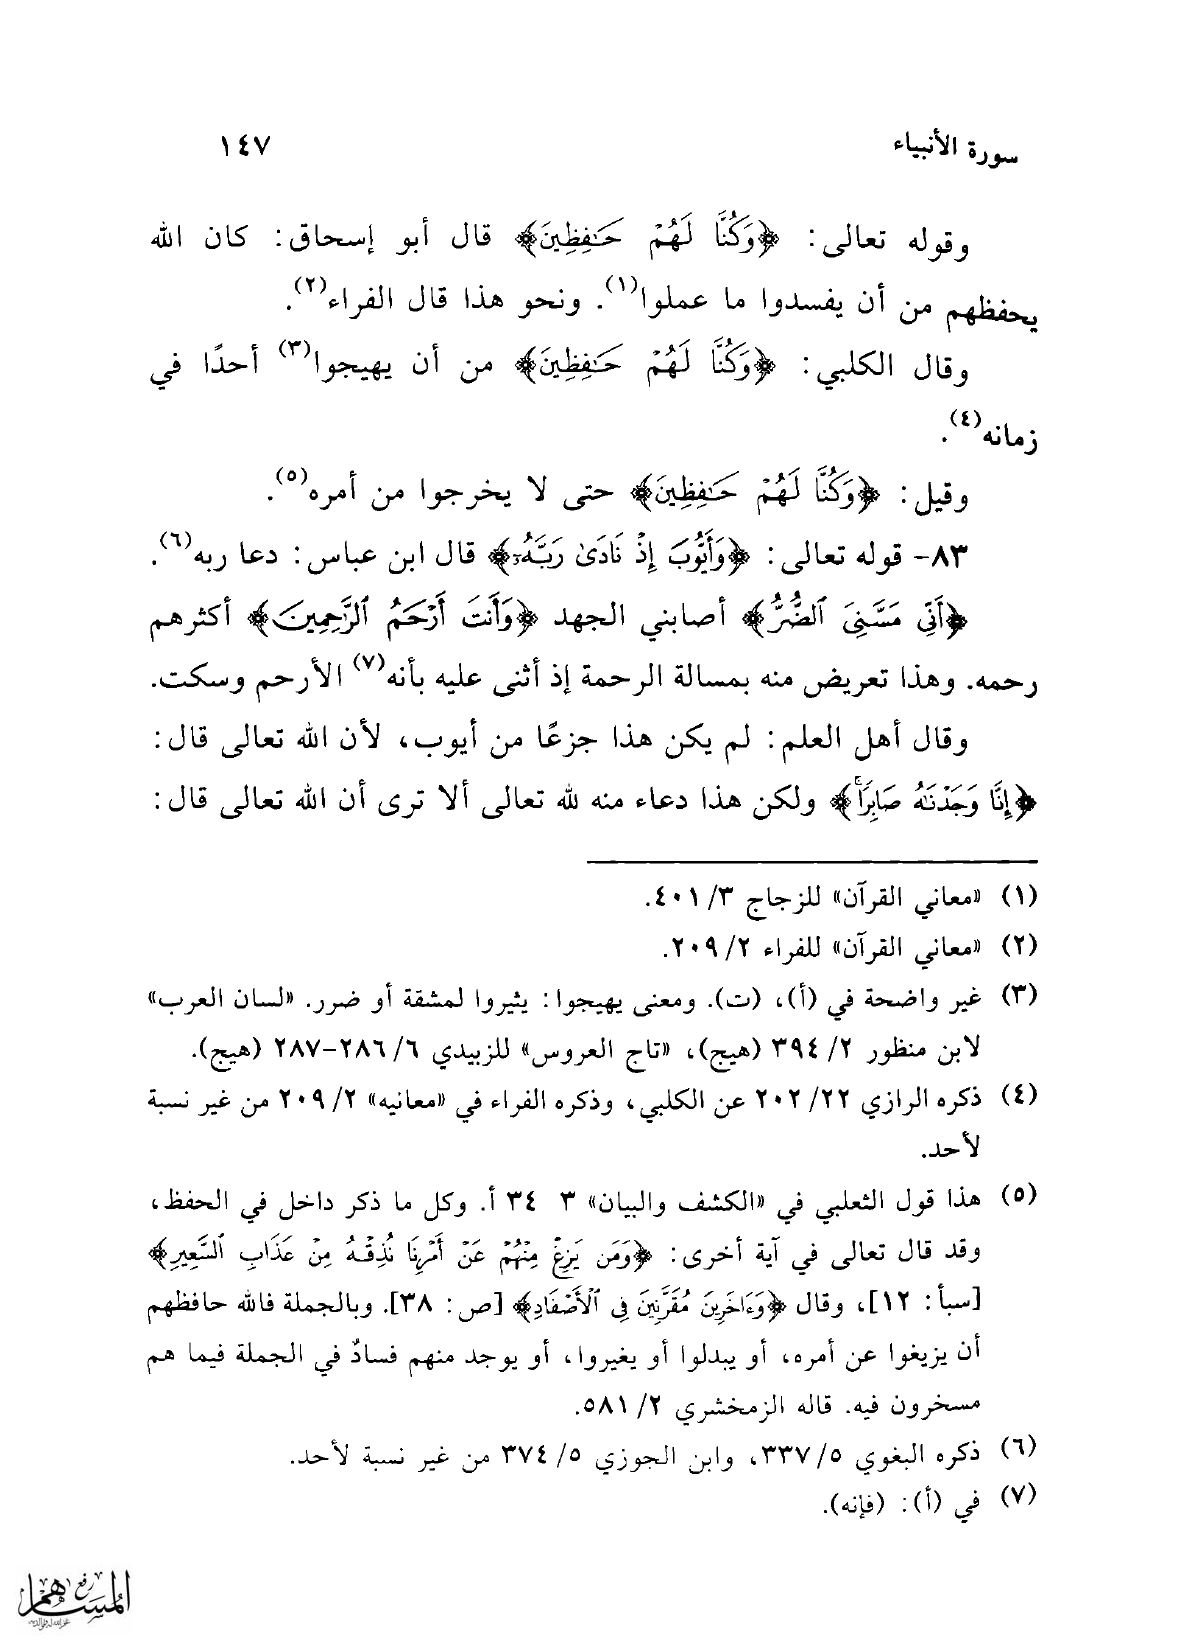 سورة الأنبياء ١٤٧
وقوله تعالى: ﴿وَكُنَّا لَهُمْ حَٰفِظِينَ﴾ قال أبو إسحاق: كان الله
يحفظهم من أن يفسدوا ما عملوا(١). ونحو هذا قال الفراء(٢).
وقال الكلبي: ﴿وَكُنَّا لَهُمْ حَٰفِظِينَ﴾ من أن يهيجوا(٣) أحدًا في
زمانه(٤).
وقيل: ﴿وَكُنَّا لَهُمْ حَٰفِظِينَ﴾ حتى لا يخرجوا من أمره(٥).
٨٣- قوله تعالى: ﴿وَأَيُّوبَ إِذْ نَادَىٰ رَبَّهُۥٓ﴾ قال ابن عباس: دعا ربه(٦).
﴿أَنِّي مَسَّنِيَ ٱلضُّرُّ﴾ أصابني الجهد ﴿وَأَنتَ أَرْحَمُ ٱلرَّٰحِمِينَ﴾ أكثرهم
رحمه. وهذا تعريض منه بمسالة الرحمة إذ أثنى عليه بأنه(٧) الأرحم وسكت.
وقال أهل العلم: لم يكن هذا جزعًا من أيوب، لأن الله تعالى قال:
﴿إِنَّا وَجَدْنَٰهُ صَابِرًا ۚ﴾ ولكن هذا دعاء منه لله تعالى ألا ترى أن الله تعالى قال:
(١) «معاني القرآن» للزجاج ٣/ ٤٠١.
(٢) «معاني القرآن» للفراء ٢/ ٢٠٩.
(٣) غير واضحة في (أ)، (ت). ومعنى يهيجوا: يثيروا لمشقة أو ضرر. «لسان العرب»
لابن منظور ٢/ ٣٩٤ (هيج)، «تاج العروس» للزبيدي ٦/ ٢٨٦-٢٨٧ (هيج).
(٤) ذكره الرازي ٢٢/ ٢٠٢ عن الكلبي، وذكره الفراء في «معانيه» ٢/ ٢٠٩ من غير نسبة
لأحد.
(٥) هذا قول الثعلبي في «الكشف والبيان» ٣ ٣٤ أ. وكل ما ذكر داخل في الحفظ،
وقد قال تعالى في آية أخرى: ﴿وَمَن يَزِغْ مِنْهُمْ عَنْ أَمْرِنَا نُذِقْهُ مِنْ عَذَابِ ٱلسَّعِيرِ﴾
[سبأ: ١٢]، وقال ﴿وَءَاخَرِينَ مُقَرَّنِينَ فِي ٱلْأَصْفَادِ﴾ [ص: ٣٨]. وبالجملة فالله حافظهم
أن يزيغوا عن أمره، أو يبدلوا أو يغيروا، أو يوجد منهم فسادٌ في الجملة فيما هم
مسخرون فيه. قاله الزمخشري ٢/ ٥٨١.
(٦) ذكره البغوي ٥/ ٣٣٧، وابن الجوزي ٥/ ٣٧٤ من غير نسبة لأحد.
(٧) في (أ): (فإنه).